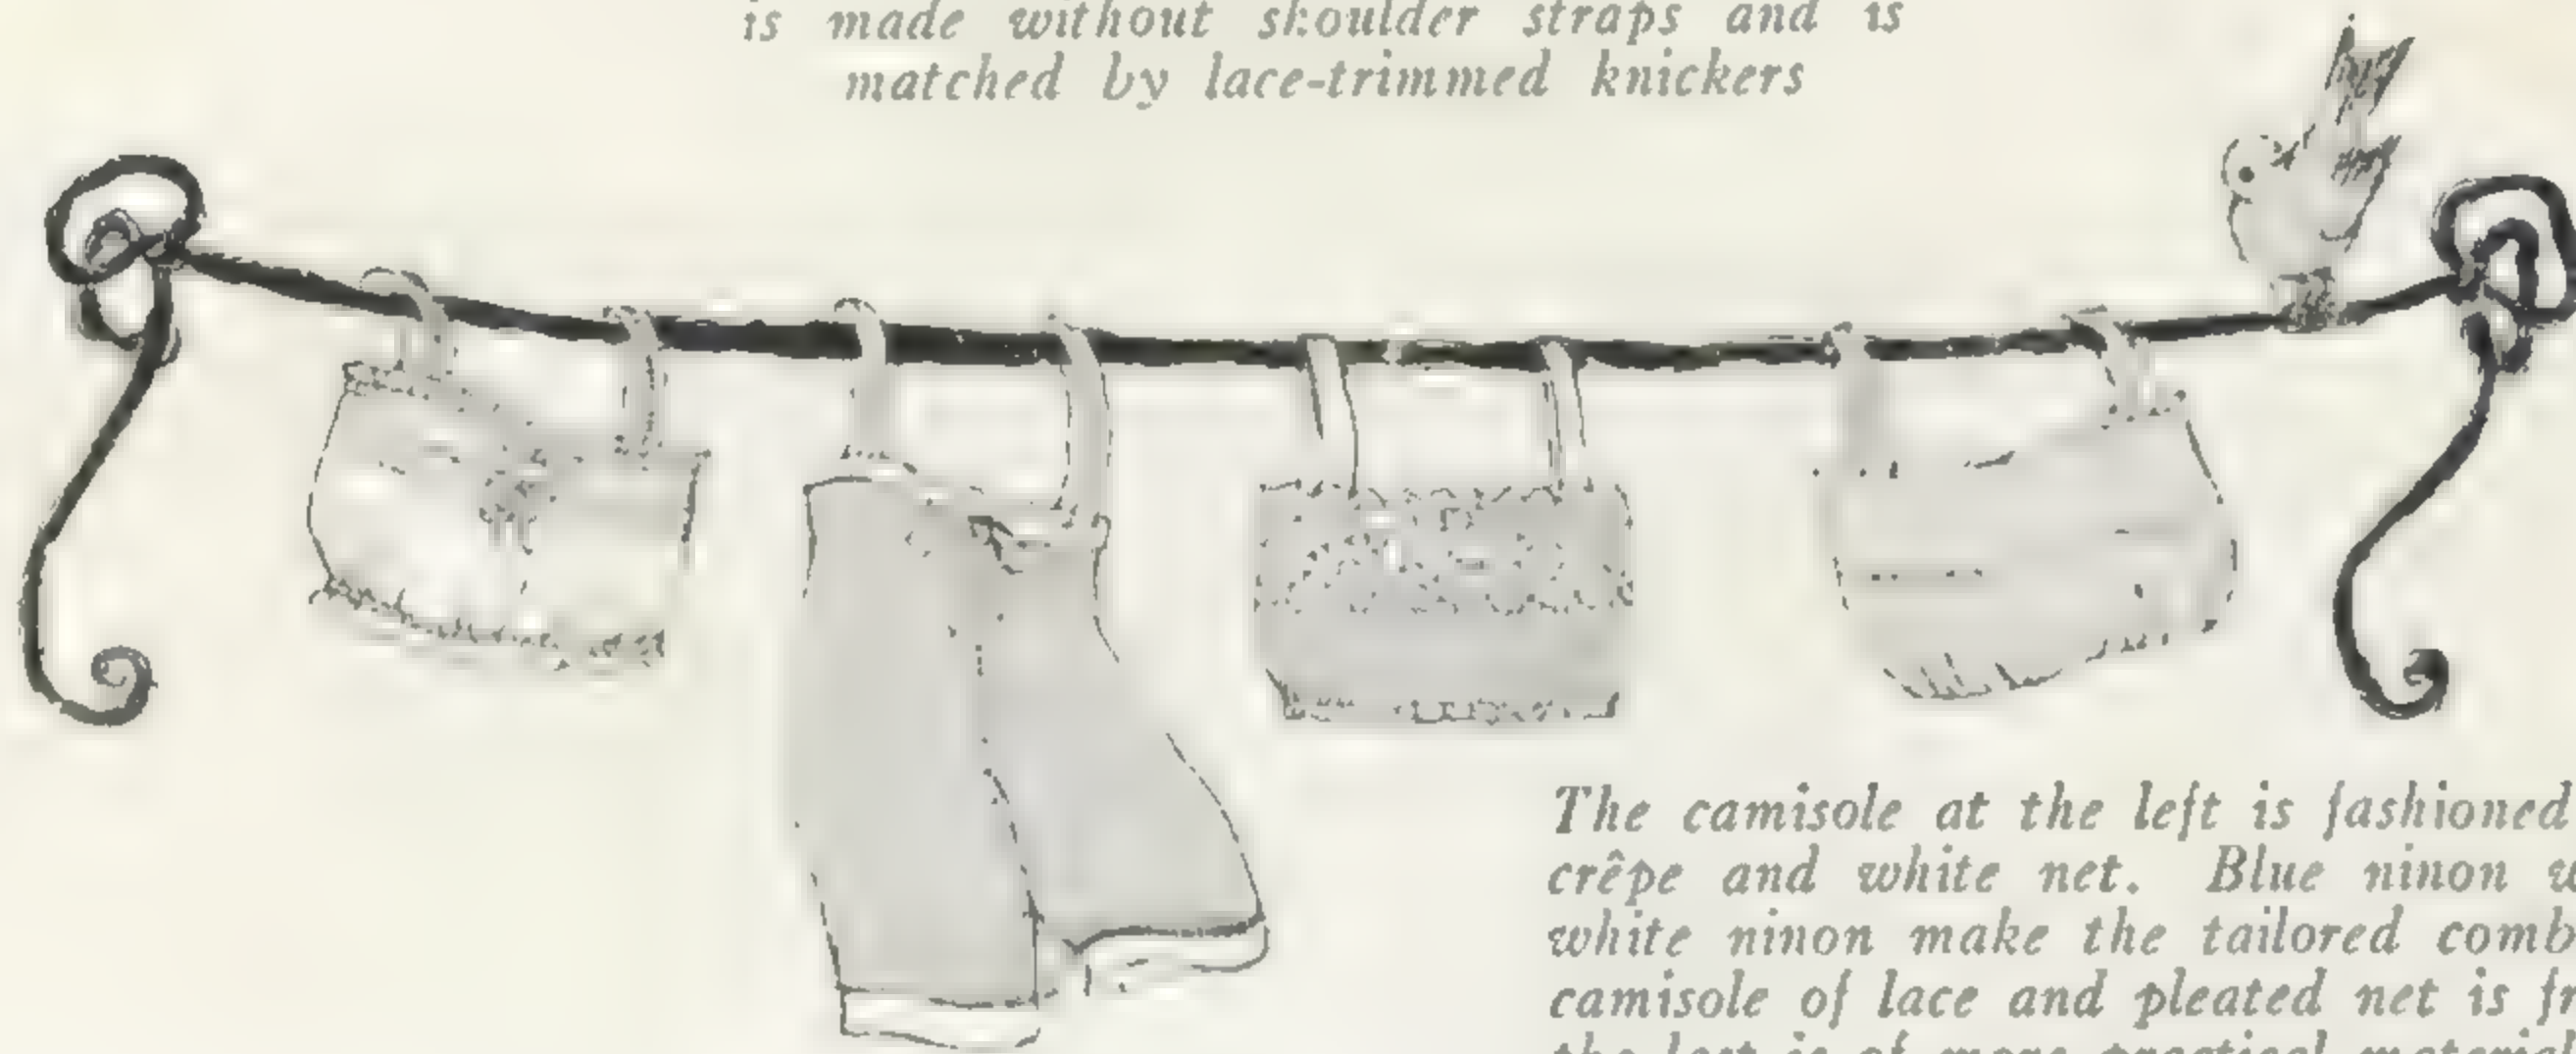 is made without shoulder straps and is
matched by lace-trimmed knickers
The camisole at the left is fashioned
crêpe and white net. Blue ninon
white ninon make the tailored comb
camisole of lace and pleated net is fr
the last is of more practical material